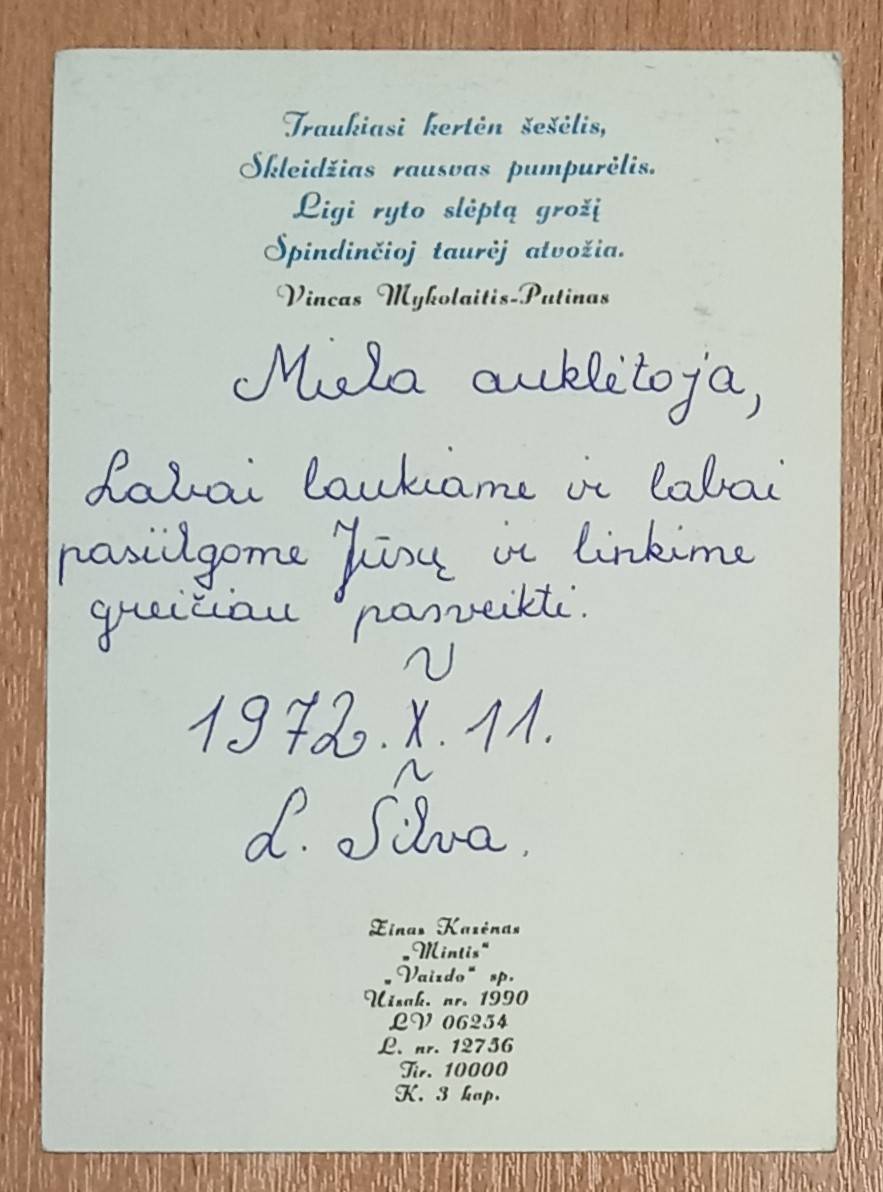 Traukiasi kertėn šešėlis,
Skleidžias rausvas pumpurėlis.
Ligi ryto slėptą grožį
Spindinčioj taurėj atvožia.
Vincas Mykolaitis-Putinas
Miela auklėtoja,
Labai laukiame ir labai
pasiilgome Jūsų ir linkime
greičiau pasveikti.
1972.X.11.
L. Silva.
Zinas Kazėnas
„Mintis“
„Vaizdo“ sp.
Užsak. nr. 1990
LV 06254
L. nr. 12756
Tir. 10000
K. 3 kap.